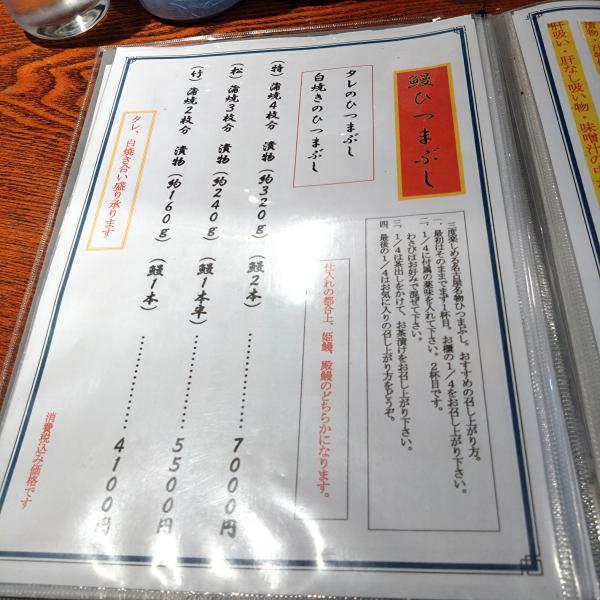 鰻ひつまぶし
三度楽しめる名古屋名物ひつまぶし。おすすめの召し上がり方。
一、最初はそのままでまず1杯目。お櫃の1/4をお召し上がり下さい。
二、1/4に付属の薬味を入れて下さい。2杯目です。
わさびはお好みで混ぜて下さい。
三、1/4は茶出しをかけて、お茶漬けをお召し上がり下さい。
四、最後の1/4はお気に入りの召し上がり方をどうぞ。
タレのひつまぶし
白焼きのひつまぶし
仕入れの都合上、姫鰻、殿鰻のどちらかになります。
(特) 蒲焼4枚分 漬物 (約320g) (鰻2本) ………… 7000円
(松) 蒲焼3枚分 漬物 (約240g) (鰻1本半) ………… 5500円
(竹) 蒲焼2枚分 漬物 (約160g) (鰻1本) ………… 4100円
タレ、白焼き合い盛り承ります
消費税込み価格です
肝吸い・肝なし吸い物・味噌汁の中